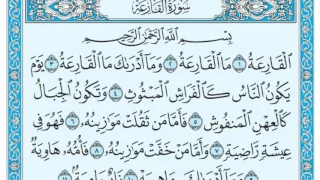 سُورَةُ القَارِعَةِ
بِسْمِ اللَّهِ الرَّحْمَٰنِ الرَّحِيمِ
الْقَارِعَةُ ١ مَا الْقَارِعَةُ ٢ وَمَا أَدْرَىٰكَ مَا الْقَارِعَةُ ٣ يَوْمَ
يَكُونُ النَّاسُ كَالْفَرَاشِ الْمَبْثُوثِ ٤ وَتَكُونُ الْجِبَالُ
كَالْعِهْنِ الْمَنفُوشِ ٥ فَأَمَّا مَن ثَقُلَتْ مَوَٰزِينُهُ ٦ فَهُوَ فِي
عِيشَةٍ رَّاضِيَةٍ ٧ وَأَمَّا مَنْ خَفَّتْ مَوَٰزِينُهُ ٨ فَأُمُّهُ هَاوِيَةٌ